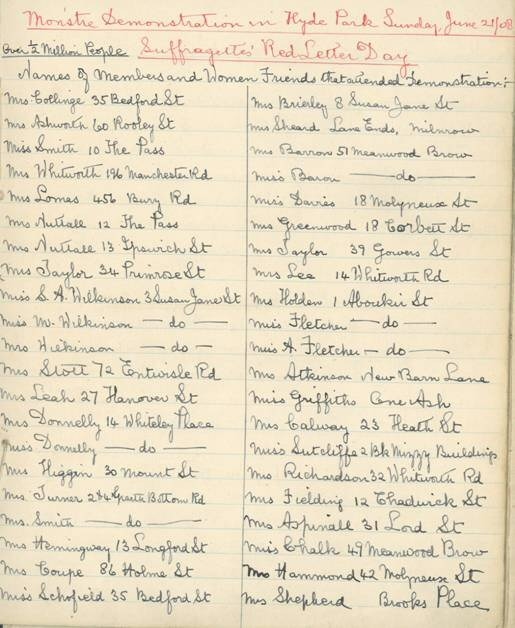 Monstre Demonstration in Hyde Park Sunday, June 21/08
Over ½ Million People Suffragettes' Red Letter Day
Names of Members and Women Friends that attended Demonstration:-
Mrs Collinge 35 Bedford St
Mrs Ashworth 60 Rooley St
Miss Smith 10 The Pass
Mrs Whitworth 196 Manchester Rd
Mrs Lomas 456 Bury Rd
Mrs Nuttall 12 The Pass
Mrs Nuttall 13 Ipswich St
Mrs Taylor 34 Primrose St
Miss S. A. Wilkinson 3 Susan Jane St
Miss M. Wilkinson — do —
Mrs Wilkinson — do —
Mrs Stott 72 Entwisle Rd
Mrs Leah 27 Hanover St
Mrs Donnelly 14 Whiteley Place
Miss Donnelly — do —
Mrs Higgin 30 Mount St
Mrs Turner 244 Sparth Bottom Rd
Mrs. Smith — do —
Mrs Hemingway 13 Longford St
Mrs Coupe 86 Holme St
Miss Schofield 35 Bedford St
Mrs Brierley 8 Susan Jane St
Mrs Sheard Lane Ends, Milnrow
Mrs Barron 51 Meanwood Brow
Miss Baron — do —
Miss Davies 18 Molyneux St
Mrs Greenwood 18 Corbett St
Mrs Taylor 39 Gowers St
Mrs Lee 14 Whitworth Rd
Mrs Holden 1 Aboukir St
Miss Fletcher — do —
Miss A. Fletcher — do —
Mrs Atkinson New Barn Lane
Miss Griffiths One Ash
Mrs Calway 23 Heath St
Miss Sutcliffe 2 Bk Mizzy Buildings
Mrs Richardson 32 Whitworth Rd
Mrs Fielding 12 Chadwick St
Mrs Aspinall 31 Lord St
Miss Chalk 49 Meanwood Brow
Mrs Hammond 42 Molyneux St
Mrs Shepherd Brooks Place